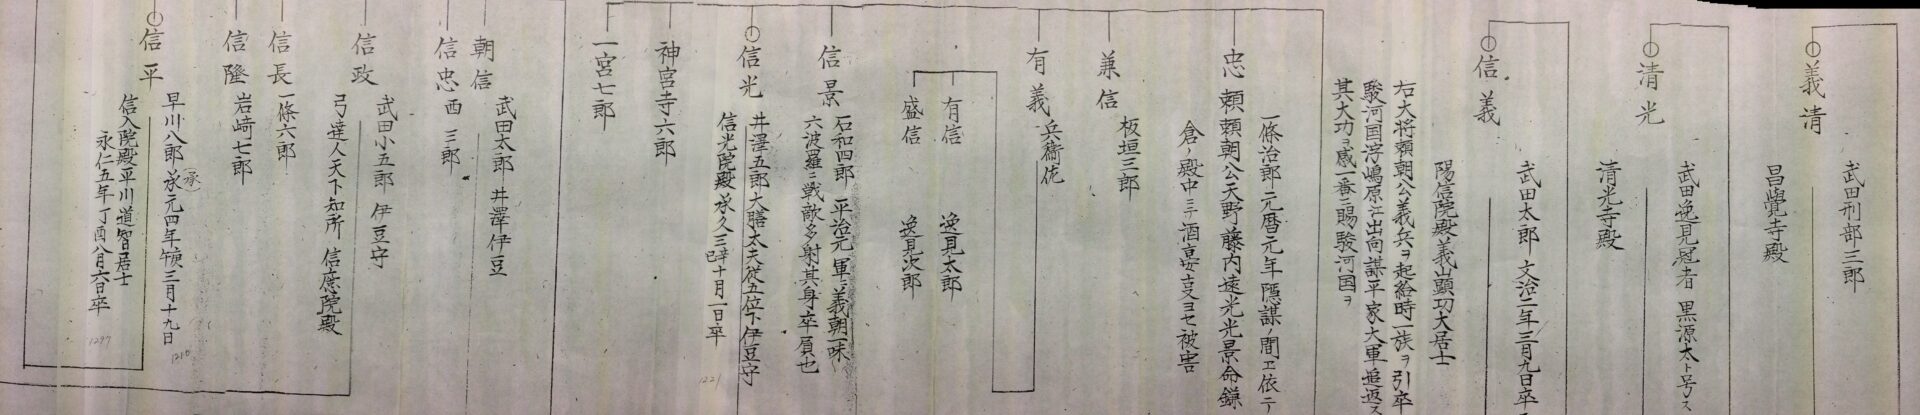 義清
武田刑部三郎
昌覺寺殿
清光
武田逸見冠者 黒源太ト号ス
清光寺殿
信義
武田太郎 文治二年三月九日卒
陽信院殿義山顕功大居士
右大将頼朝公義兵ヲ起給時一族ヲ引卒
駿河国浮嶋原ニ出向謀平家大軍追返ス
其大功ヲ感一番ニ賜駿河国ヲ
忠頼
一條治郎 元暦元年隠謀ノ間エ依テ
頼朝公天野藤内遠光光景命鎌
倉ノ殿中ニテ酒宴支ヨセ被害
兼信
板垣三郎
有義
兵衛佐
有信 逸見太郎
盛信 逸見次郎
信景
石和四郎 平治元軍ニ義朝一味
六波羅ニ戦敵多射其身卒屓也
信光
井澤五郎大膳太夫従五位下伊豆守
信光院殿 承久三辛巳十月一日卒
1221
神宮寺六郎
一宮七郎
朝信
武田太郎 井澤伊豆
信忠
西三郎
信政
武田小五郎 伊豆守
弓達人天下知所 信應院殿
信長
一條六郎
信隆
岩崎七郎
信平
早川八郎 承元四年庚午三月十九日
(承)
1210
信入院殿平川道智居士
永仁五年丁酉八月六日卒
1297